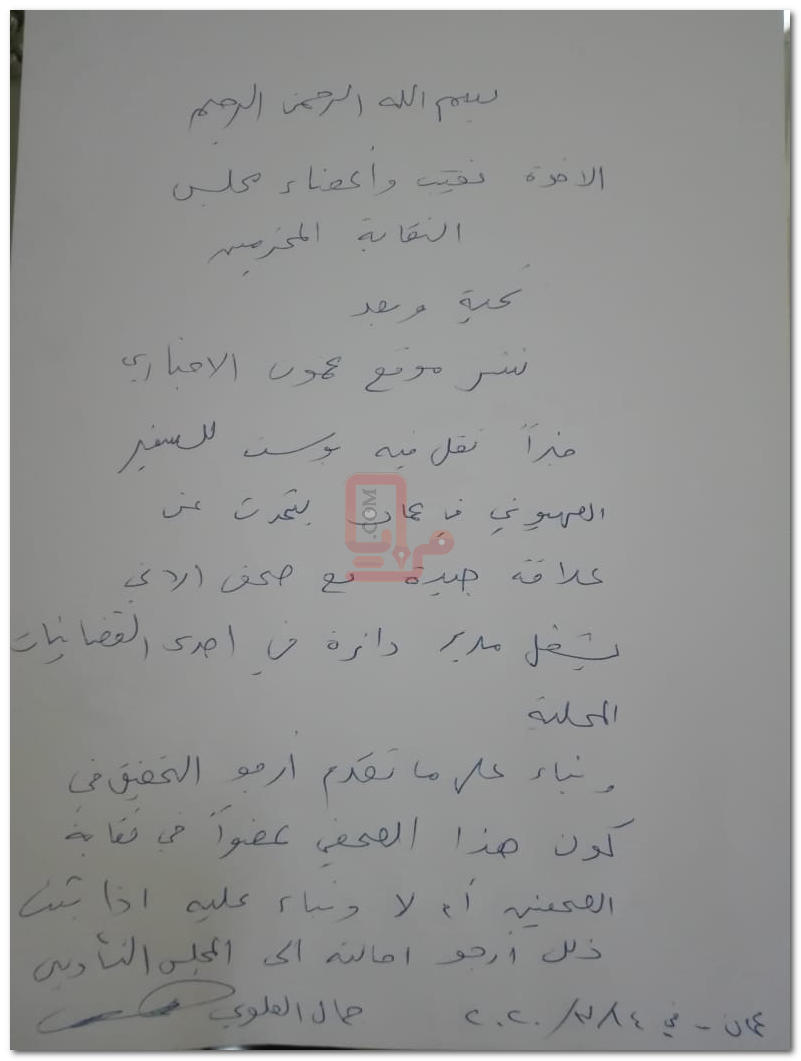 بسم الله الرحمن الرحيم
الاخوة نقيب وأعضاء مجلس
النقابة المحترمين
تحية وبعد
نشر موقع عمون الاخباري
خبراً نقل فيه بوست للسفير
الصهيوني في عمان يتحدث عن
علاقة جيدة مع صحفي اردني
يشغل مدير دائرة في احدى الفضائيات
المحلية
وبناء على ما تقدم أرجو التحقيق في
كون هذا الصحفي عضواً في نقابة
الصحفيين أم لا وبناء عليه اذا ثبت
ذلك أرجو احالته الى المجلس التأديبي
جمال العلوي
عمان - في ٢٠٢٠/٣/١٤
مرايا
.COM